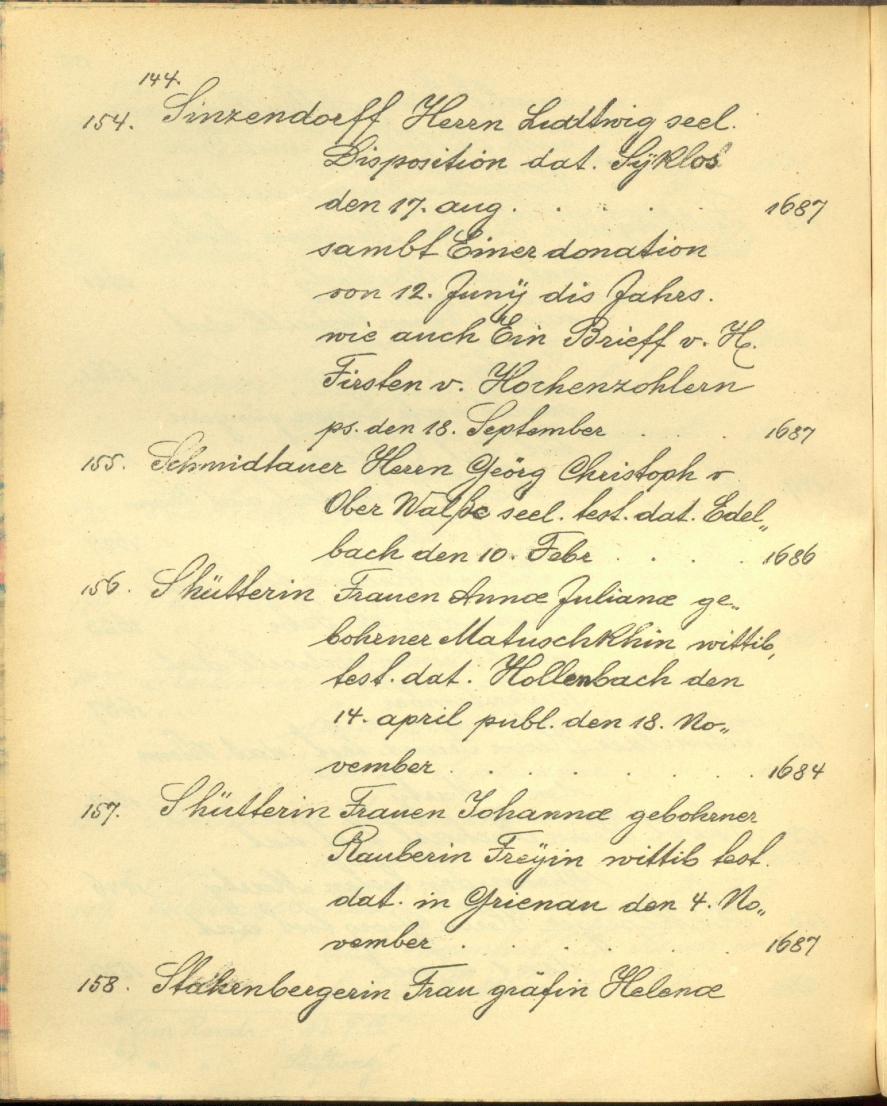 144.
154. Sinzendorff Herrn Luddtwig seel.
Disposition dat. Syklos
den 17. aug. . . . . 1687
sambt Einer donation
von 12. Junÿ dis Jahrs.
wie auch Ein Brieff v. H.
Firsten v. Hochenzohlern
ps. den 18. September . . . 1687
155. Schmidtauer Herrn Geörg Christoph v
Ober Walße seel. test. dat. Edel„
bach den 10. Febr . . . 1686
156. Shütterin Frauen Annæ Julianæ ge„
bohrner Matuschkhin wittib,
test. dat. Hollenbach den
14. april publ. den 18. No„
vember . . . . . . 1684
157. Shütterin Frauen Johannæ gebohrner
Rauberin Freÿin wittib test.
dat. in Grienau den 4. No„
vember . . . . . 1687
158. Stahrnbergerin Frau gräfin Helenæ